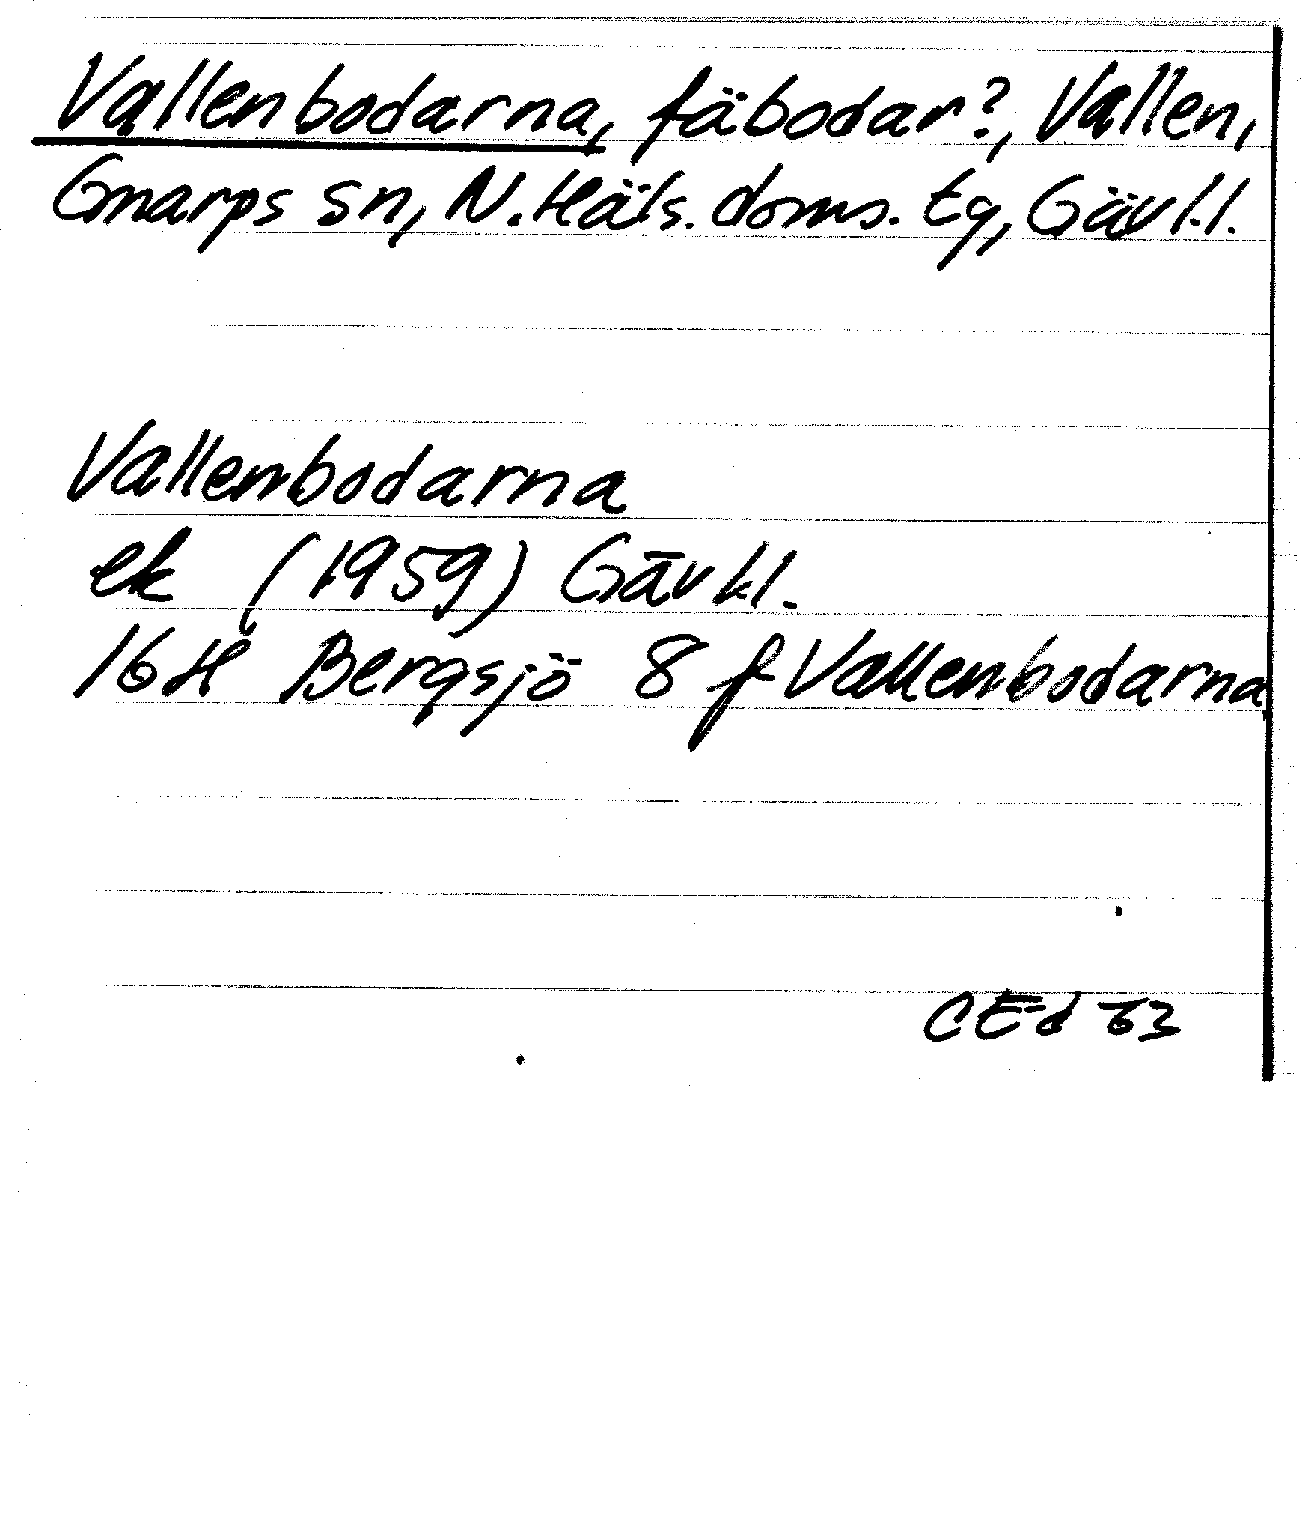 Vallenbodarna, fäbodar?, Vallen,
Gnarps sn, N. Häls. doms. tg, Gävl. l.
Vallenbodarna
ek (1959) Gävl. l.
16 H Bergsjö 8 f Vallenbodarna
CEd 63